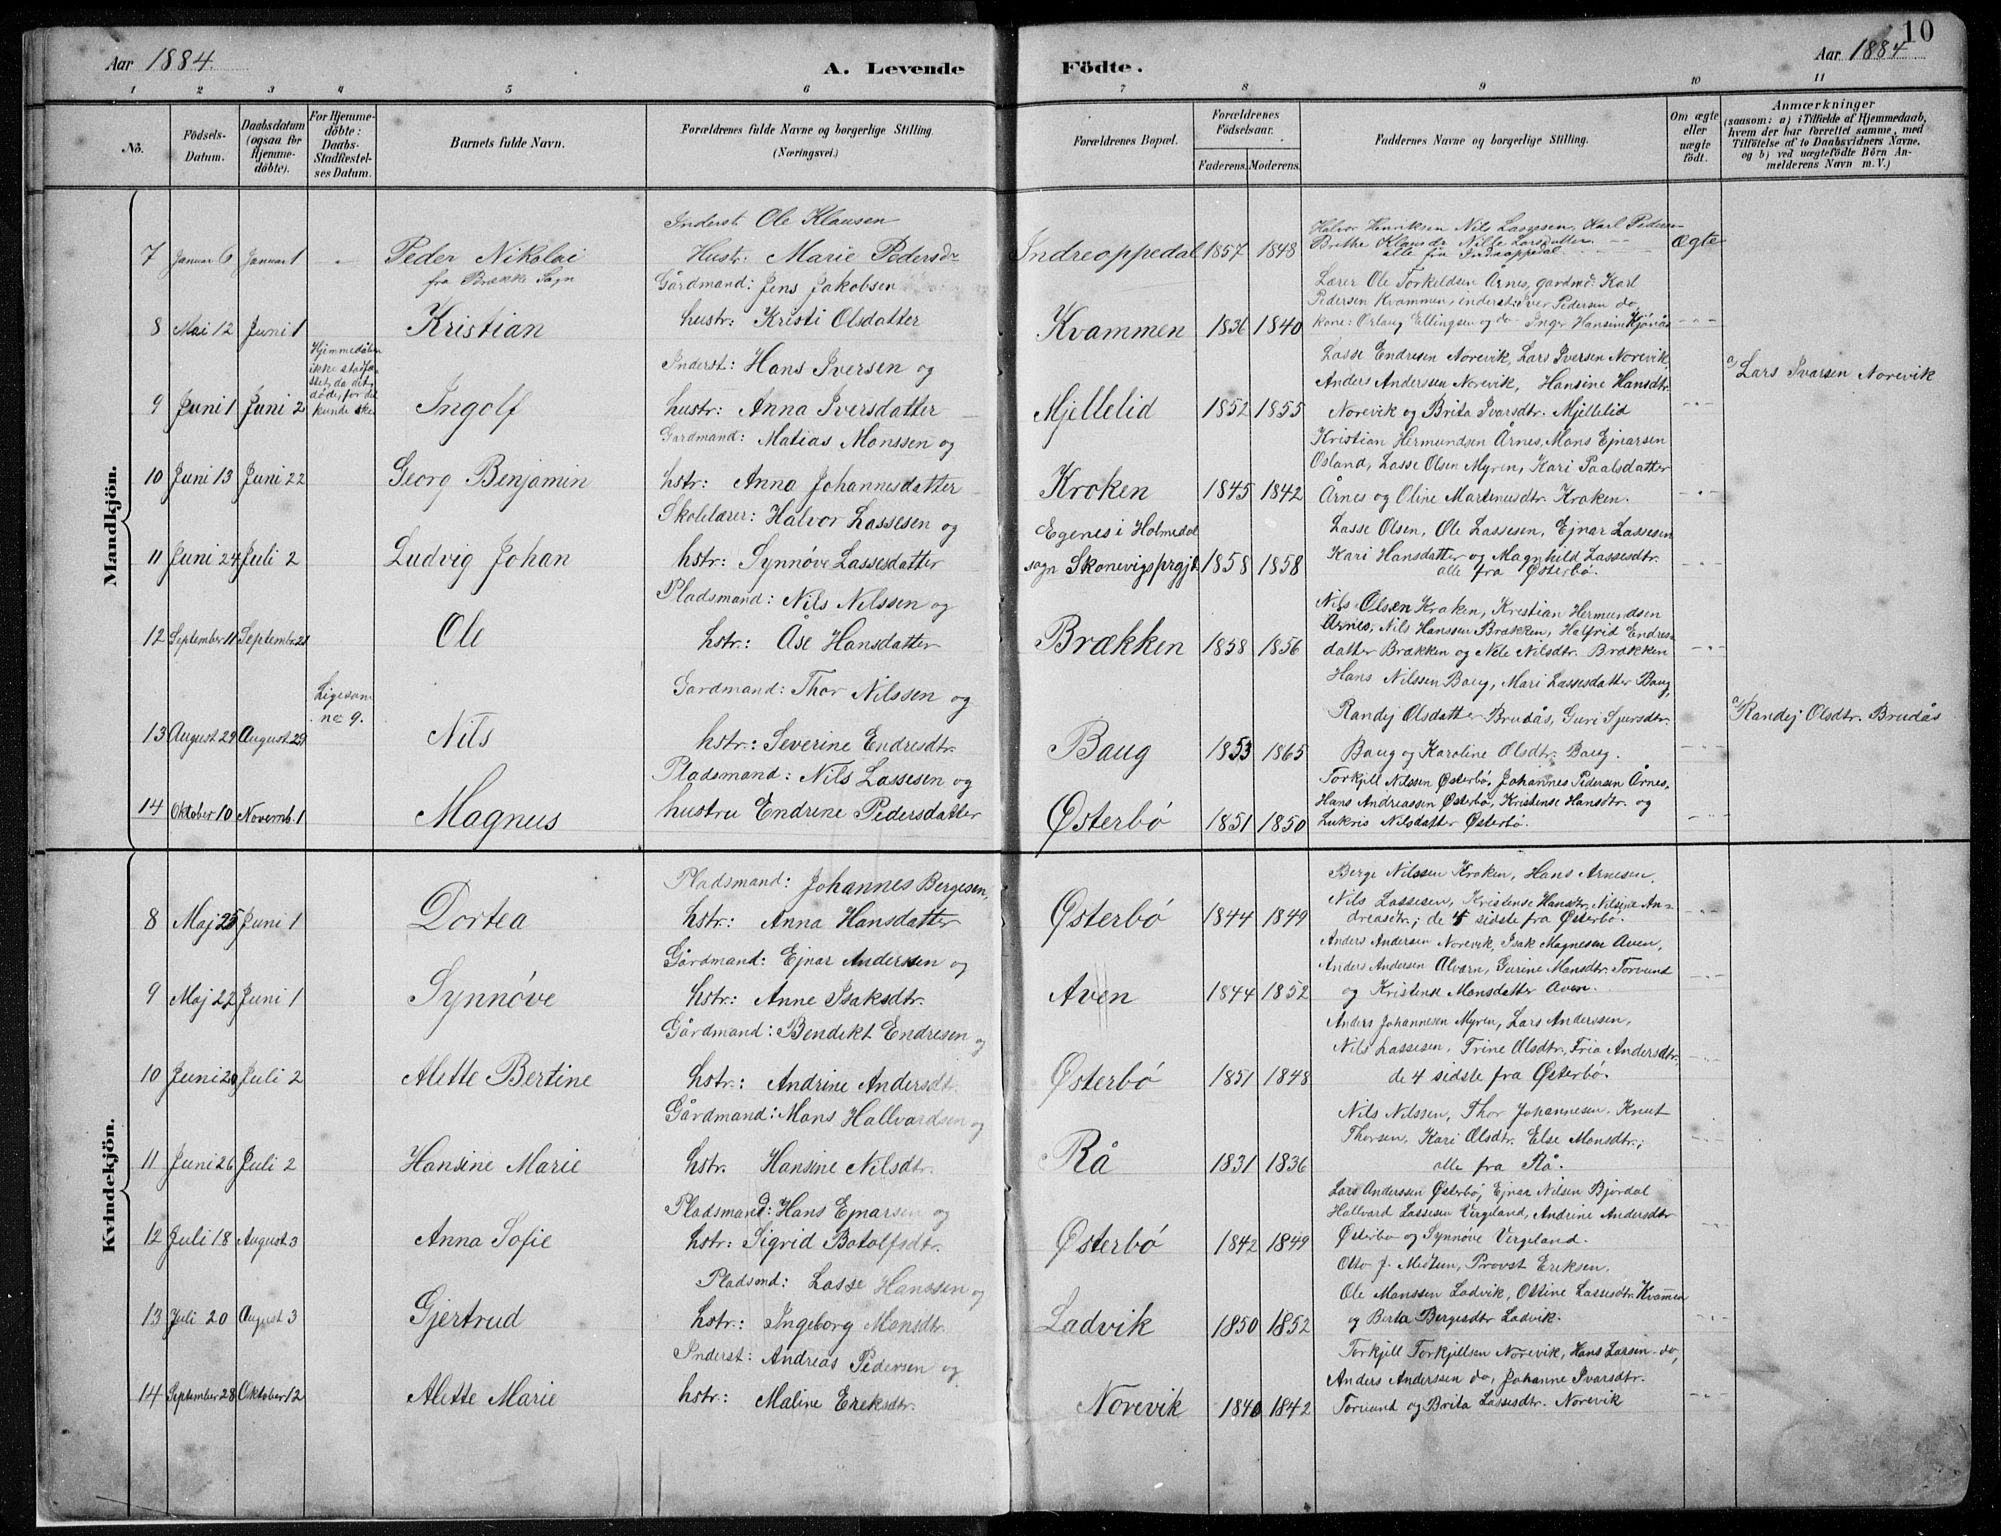 10
Aar 1884.
A. Levende
Födte.
Aar 1884
1 2 3 4 5 6 7 8 9 10 11
No.
Födsels-Datum.
Daabsdatum (ogsaa for Hjemme-döbte).
For Hjemme-döbte: Daabs-Stadfæstel-ses Datum.
Barnets fulde Navn.
Forældrenes fulde Navne og borgerlige Stilling.
(Næringsvei.)
Forældrenes Bopæl.
Forældrenes Födselsaar.
Faderens. Moderens.
Faddernes Navne og borgerlige Stilling.
Om ægte eller uægte födt.
Anmærkninger
(saasom: a) i Tilfælde af Hjemmedaab,
hvem der har forrettet samme, med
Tilföielse af to Daabsvidners Navne,
og b) ved uægtefödte Börn An-
melderens Navn m. V.)
Mandkjön.
Inderst Ole Klausen
7 Januar 6 Januar 1 Peder Nikolai Hustr: Marie Pedersdr Indreoppedal 1857 1848 Halvor Henriksen Nils Lassesen, Karl Pedersen
Brithe Klausdr Nille Larsdatter
alle fra Indreoppedal Ægte
fra Brække Sogn
Gårdmand: Jens Jakobsen
8 Mai 12 Juni 1 Kristian hustr: Kristi Olsdatter Kvammen 1836 1840 Lærer Ole Torkeldsen Årnes, gardmd: Karl
Pedersen Kvammen, inderst: Iver Pedersen do,
kone: Orlaug Ellingsen og do Inger Hansine Kjönås
Hjemmedåben ikke stadfæ-stet, da det döde, för det kunde ske
Inderst: Hans Iversen og
9 Juni 1 Juni 2 Ingolf hustr: Anna Iversdatter Mjellelid 1852 1855 Lasse Endresen Norevik, Lars Iversen Norevik,
Anders Anderssen Norevik, Hansine Hansdtr.
Norevik og Brita Ivarsdtr. Mjellelid
a/ Lars Ivarsen Norevik
Gardmand: Matias Monssen og
10 Juni 13 Juni 22 Georg Benjamin hstr: Anna Johannesdatter Kroken 1845 1842 Kristian Hermundsen Årnes, Mons Ejnarsen
Osland, Lasse Olsen Myren, Kari Paalsdatter
Årnes og Oline Martenusdtr. Kroken.
Skolelærer: Halvor Lassesen og
11 Juni 24 Juli 2 Ludvig Johan hstr: Synnøve Lassesdatter Egenes i Holmedal
sogn Skonevigsprgjd. 1858 1858 Lasse Olsen, Ole Lassesen, Ejnar Lassesen
Kari Hansdatter og Magnhild Lassesdtr.
alle fra Østerbö.
Pladsmand: Nils Nilssen og
12 September 11 September 21 Ole hstr: Åse Hansdatter Brækken 1858 1856 Nils Olsen Kroken, Kristian Hermundsen
Årnes, Nils Hanssen Brækken, Halfrid Endres-
datter Brækken og Nele Nilsdtr. Brækken
Ligesom no 9.
Gardmand: Thor Nilssen og
13 August 29 August 29 Nils hstr: Severine Endresdtr. Baug 1853 1865 Hans Nilssen Baug, Mari Lassesdatter Baug,
Randej Olsdatter Brudås, Guri Sjursdtr.
Baug og Karoline Olsdtr. Baug.
a/ Randej Olsdtr. Brudås
Pladsmand: Nils Lassesen og
14 Oktober 10 Novemb. 1 Magnus hustru Endrine Pedersdatter Østerbö 1851 1850 Torkjell Nilssen Østerbö, Johannes Pedersen Årnes,
Hans Andreassen Østerbö, Kristense Hansdtr. og
Lukris Nilsdatter Østerbö.
Kvindekjön.
Pladsmand: Johannes Bergesen,
8 Maj 25 Juni 1 Dortea hstr: Anna Hansdatter Østerbö 1844 1849 Berge Nilssen Kroken, Hans Arnesen,
Nils Lassesen, Kristense Hansdtr, Nilsine An-
dreasdtr.; de 4 sidste fra Østerbö.
Gårdmand: Ejnar Anderssen og
9 Maj 22 Juni 1 Synnøve hstr: Anne Isaksdtr. Aven 1844 1852 Anders Andersen Norevik, Isak Magnesen Aven,
Anders Andersen Alvørn, Gurine Monsdtr. Torvund
og Kristense Monsdatter Aven.
Gårdmand: Bendikt Endresen og
10 Juni 20 Juli 2 Alette Bertine hstr: Andrine Andersdt. Østerbö 1851 1848 Anders Johannesen Myren, Lars Anderssen,
Nils Lassesen, Trine Olsdtr, Fria Andersdtr,
de 4 sidste fra Østerbö.
Gårdmand: Mons Hallvardsen og
11 Juni 26 Juli 2 Hansine Marie hstr: Hansine Nilsdtr. Rå 1831 1836 Nils Nilssen, Thor Johannesen, Knut
Thorsen, Kari Olsdtr. Else Monsdtr.;
alle fra Rå.
Pladsmand: Hans Ejnarsen og
12 Juli 18 August 3 Anna Sofie hstr: Sigrid Botolfsdtr. Østerbö 1842 1849 Lars Anderssen Østerbö, Ejnar Nilsen Bjordal
Hallvard Lassesen Vergeland, Andrine Andersdtr
Østerbö og Synnøve Vergeland.
Pladsmd: Lasse Hanssen og
13 Juli 20 August 3 Gjertrud hstr: Ingeborg Monsdtr. Ladvik 1850 1852 Otto J. Provst Eriksen.
Ole Monssen Ladvik, Ostine Lassesdtr. Kvammen
og Berta Bergesdtr Ladvik.
Inderst: Andreas Pedersen og
14 September 28 Oktober 12 Alette Marie hstr: Maline Ereksdtr. Norevik 1840 1842 Torkjell Torkjellsen Norevik, Hans Larsen do,
Anders Anderssen do, Johanne Ivarsdtr.
Torvund og Brita Lassesdtr. Norevik